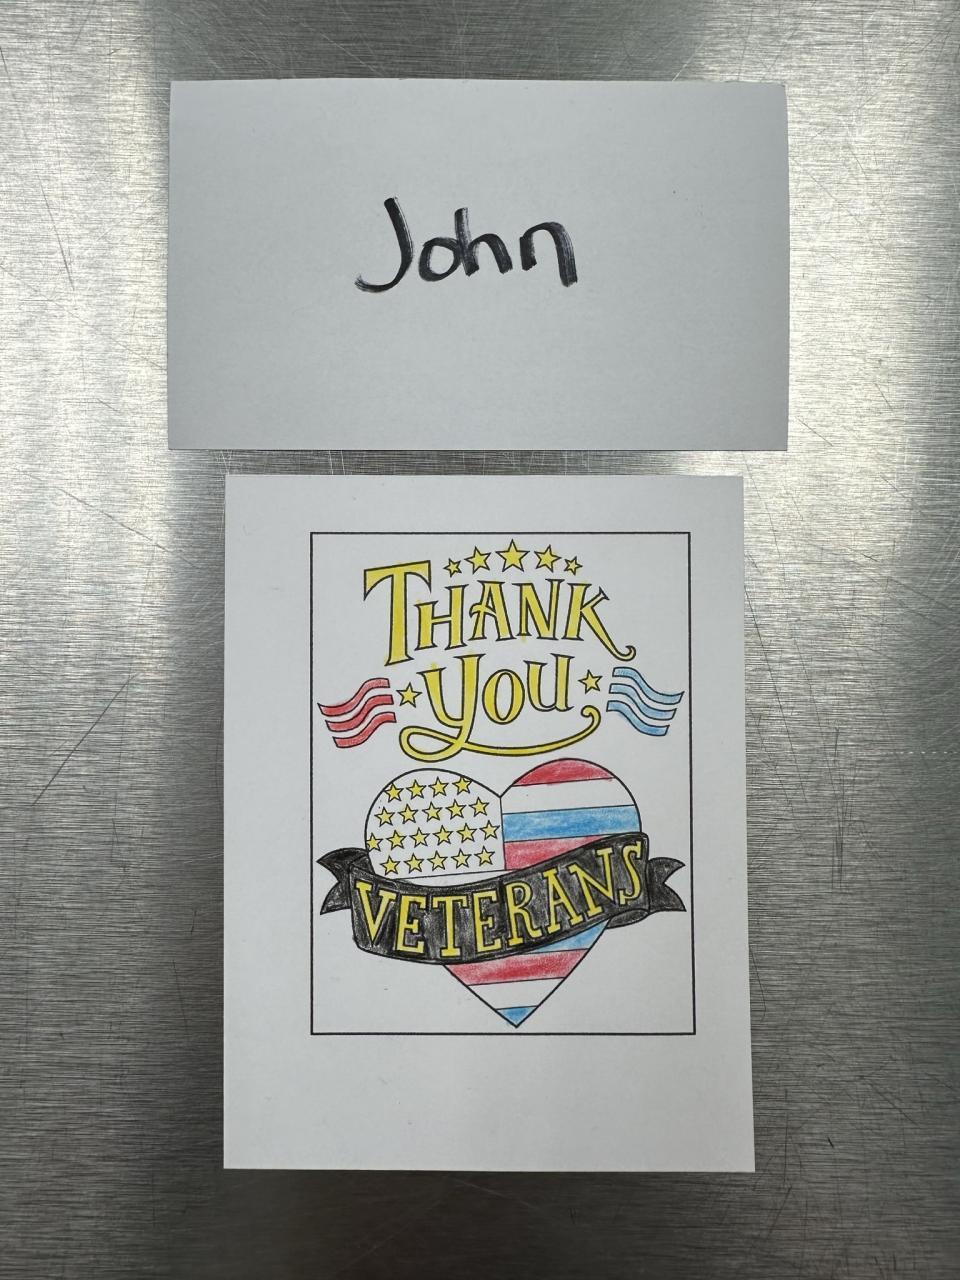 John
THANK
You
VETERANS